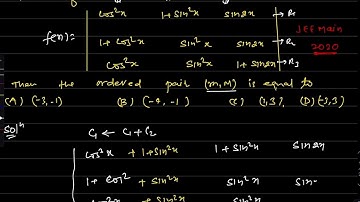 cos²x 1+sin²x sin2x → R₁
f(x)= 1+cos²x sin²x sin2x → R₂
cos²x sin²x 1+sin2x → R₃
JEE Main
2020
Then the ordered pair (m,M) is equal to
(A) (-3,-1) (B) (-4,-1) (C) (1,3) (D) (-3,3)
Solⁿ C₁ ← C₁+C₂
cos²x + 1+sin²x 1+sin²x sin2x
1+cos² + sin²x sin²x sin
cos²x + sin²x sin²x